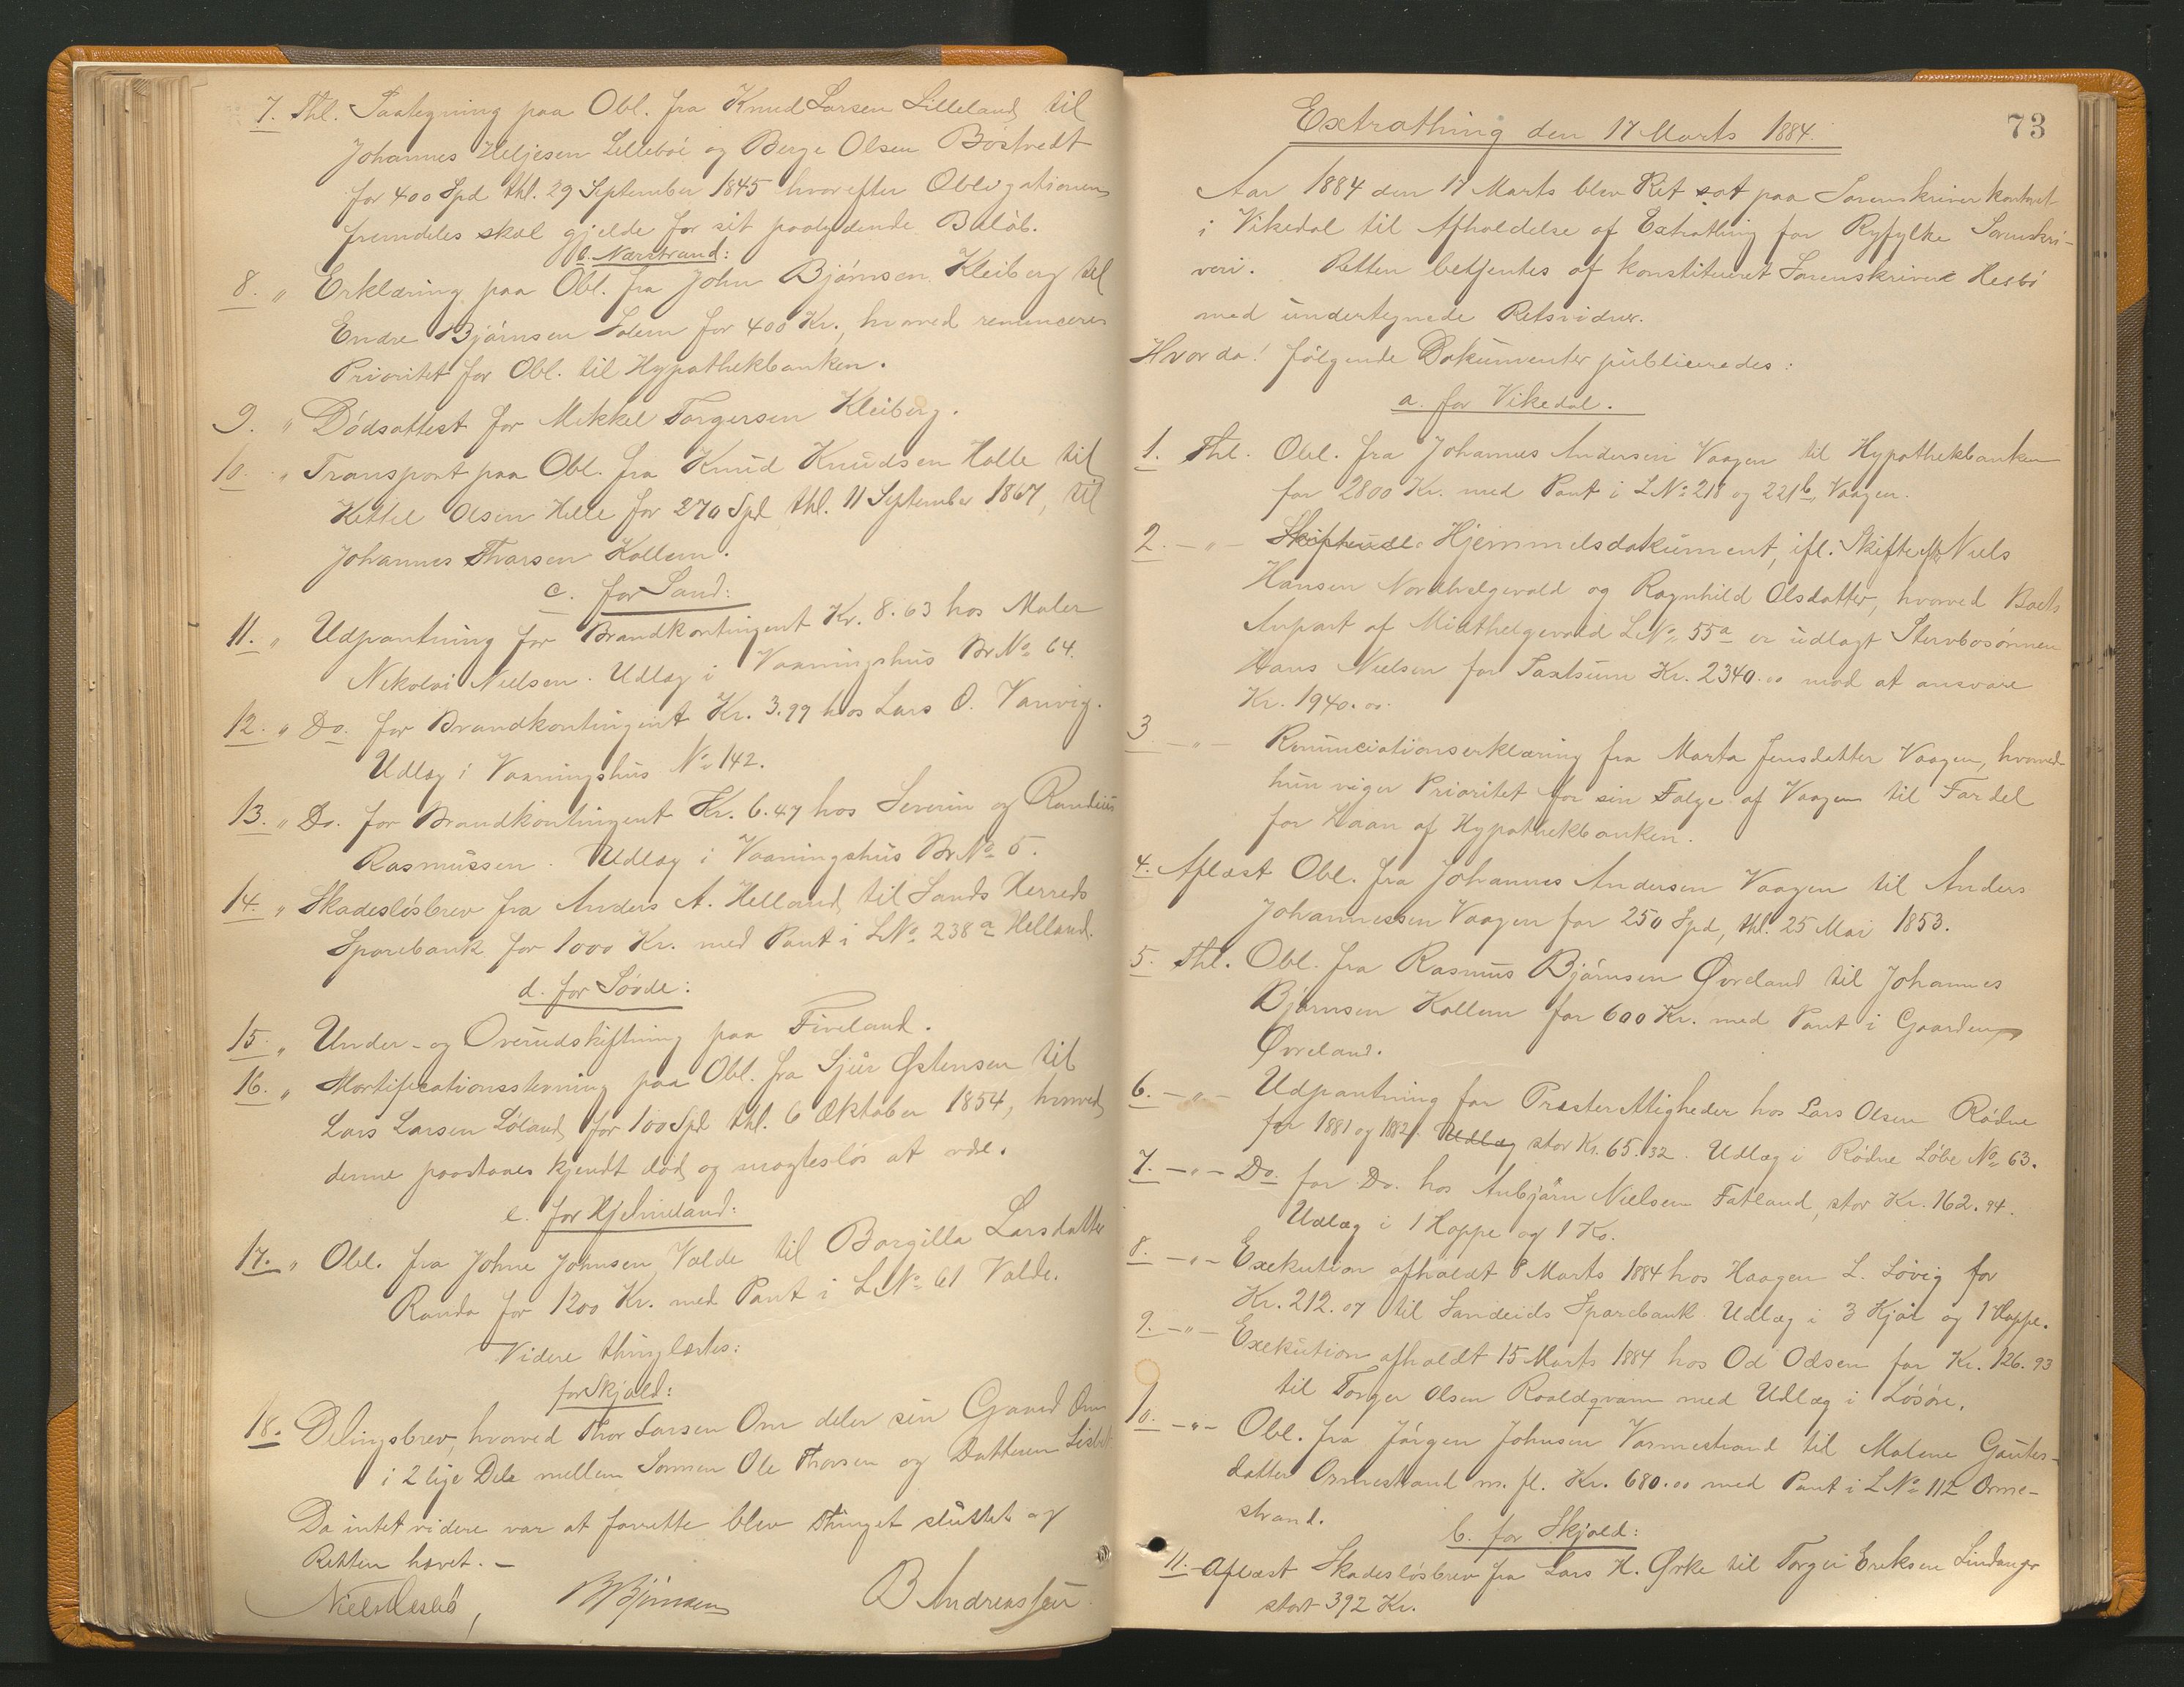 7. Thl. Paategning paa Obl. fra Knud Larsen Lilleland til
Johannes Heljesen Lillebøe og Berge Olsen Bøstvedt
for 400 Spd thl. 29 September 1845 hvorefter Obligationen
fremdeles skal gjelde for sit paalydende Beløb.
b. Nærstrand:
8. " Erklæring paa Obl. fra John Bjørnsen Kleiberg til
Endre Bjørnsen Solem for 400 Kr., hvorved renunceres
Prioritet for Obl. til Hypothekbanken.
9. " Dødsattest for Mikkel Torgersen Kleiberg.
10. " Transport paa Obl. fra Knud Knudsen Halle til
Kittil Olsen Helle for 270 Spd thl. 11 September 1867, til
Johannes Tharsen Kallem.
c. for Sand:
11. " Udpantning for Brandkontingent Kr. 8.63 hos Maler
Nikolai Nielsen. Udlæg i Vaaningshus Br No 64.
12. " Do. for Brandkontingent Kr. 3.99 hos Lars O. Vanvig.
Udlæg i Vaaningshus No 142.
13. " Do. for Brandkontingent Kr. 6.47 hos Severin og Randius
Rasmussen. Udlæg i Vaaningshus Br No 5.
14. " Skadesløsbrev fra Anders A. Helland til Sands Herreds
Sparebank for 1000 Kr. med Pant i LNo 238a Helland.
d. for Søvde:
15. " Under- og Overudskiftning paa Fiveland.
16. " Mortificationsstevning paa Obl. fra Sjur Østensen til
Lars Larsen Løland for 100 Spd thl. 6 Oktober 1854, hvorved
denne paastaaes kjendt død og magtesløs at være.
e. for Hjelmeland:
17. " Obl. fra Johne Johnsen Valde til Borgilla Larsdatter
Randa for 1200 Kr. med Pant i LNo 61 Valde.
Videre thinglæstes:
for Skjold:
18. Delingsbrev, hvorved Thor Larsen Om deler sin Gaard Om
i 2 lige Dele mellem Sønnen Ole Thorsen og Datteren Lisbet
Da intet videre var at forrette blev Thinget sluttet og
Retten hævet. –
Niels Hesbø, B Bjørnsen B Andreassen
73
Extrathing den 17 Marts 1884.
Aar 1884 den 17 Marts blev Ret sat paa Sorenskriverkontoret
i Vikedal til Afholdelse af Extrathing for Ryfylke Sorenskri-
veri. Retten betjentes af konstitueret Sorenskriver Hesbø
med undertegnede Retsvidner.
Hvorda! følgende Dokumenter publiceredes:
a. for Vikedal.
1. Thl. Obl. fra Johannes Andersen Vaagen til Hypothekbanken
for 2800 Kr. med Pant i LNo 218 og 221b, Vaagen.
2. – " – Skifteudl. Hjemmelsdokument, ifl. Skifte eft. Niels
Hansen Nordhelgevold og Ragnhild Olsdatter, hvorved Boets
Anpart af Midthelgevold LNo 55a er udlagt Stervbosønnen
Hans Nielsen for Taxtsum Kr. 2340.00 mod at ansvare
Kr. 1940.00.
3 – " – Renunciationserklæring fra Marta Jensdatter Vaagen, hvorved
hun viger Prioritet for sin Følge af Vaagen til Fordel
for Laan af Hypothekbanken.
4. Aflæst Obl. fra Johannes Andersen Vaagen til Anders
Johannessen Vaagen for 250 Spd, thl. 25 Mai 1853.
5. Thl. Obl. fra Rasmus Bjørnsen Øvreland til Johannes
Bjørnsen Kallem for 600 Kr. med Pant i Gaarden
Øvreland.
6. – " – Udpantning for Præsterettigheder hos Lars Olsen Rødne
for 1881 og 1882. Udlæg stor Kr. 65.32. Udlæg i Rødne Løbe No 63.
7. – " – Do. for Do. hos Anbjørn Nielsen Fatland, stor Kr. 162.94.
Udlæg i 1 Hoppe og 1 Ko.
8. – " – Exekution afholdt 8 Marts 1884 hos Haagen L. Løvig for
Kr. 212.07 til Sandeids Sparebank. Udlæg i 3 Kjør og 1 Hoppe.
9. – " – Exekution afholdt 15 Marts 1884 hos Od Odsen for Kr. 126.93
til Torger Olsen Roaldqvam med Udlæg i Løsøre.
10. – " – Obl. fra Jørgen Johnsen Vormestrand til Malene Gautes-
datter Ormestrand m. fl. Kr. 680.00 med Pant i LNo 112 Orme-
strand.
b. for Skjold:
11. Aflæst Skadesløsbrev fra Lars H. Ørke til Torger Eriksen Lindanger
stort 392 Kr.